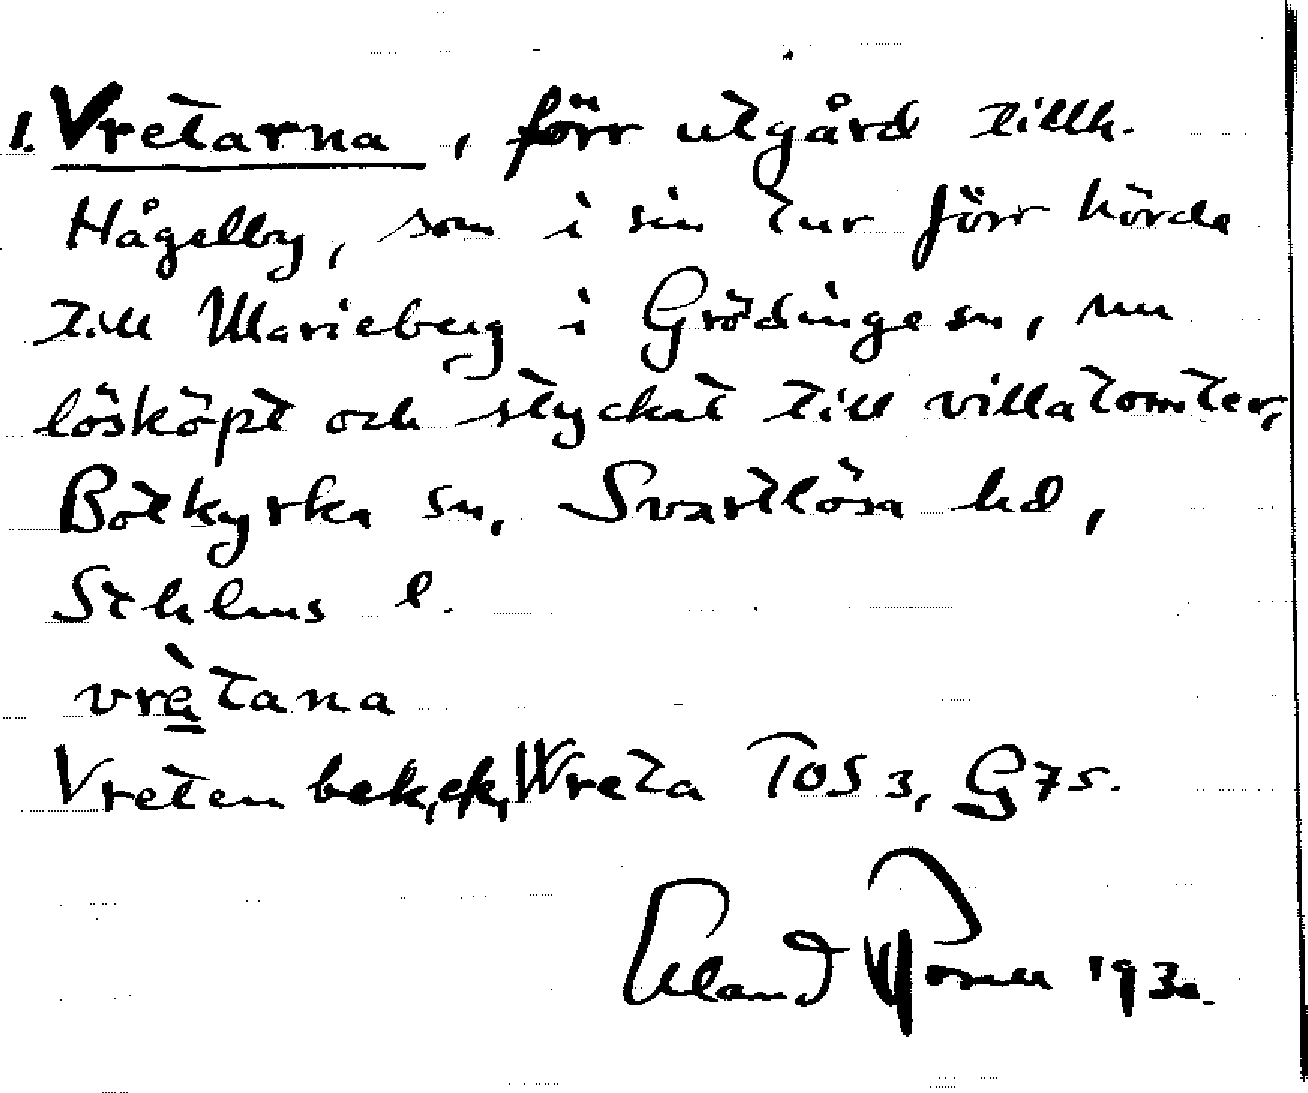 1. Vretarna, förr utgård tillh.
Hågelby, som i sin tur förr hörde
till Marieberg i Grödinge sn, nu
lösköpt och styckat till villatomter,
Botkyrka sn, Svartlösa hd,
Sthlms l.
vrètana
Vreten bek, ek, Wreta TOS 3, G 75.
Erland Rosell 1930.